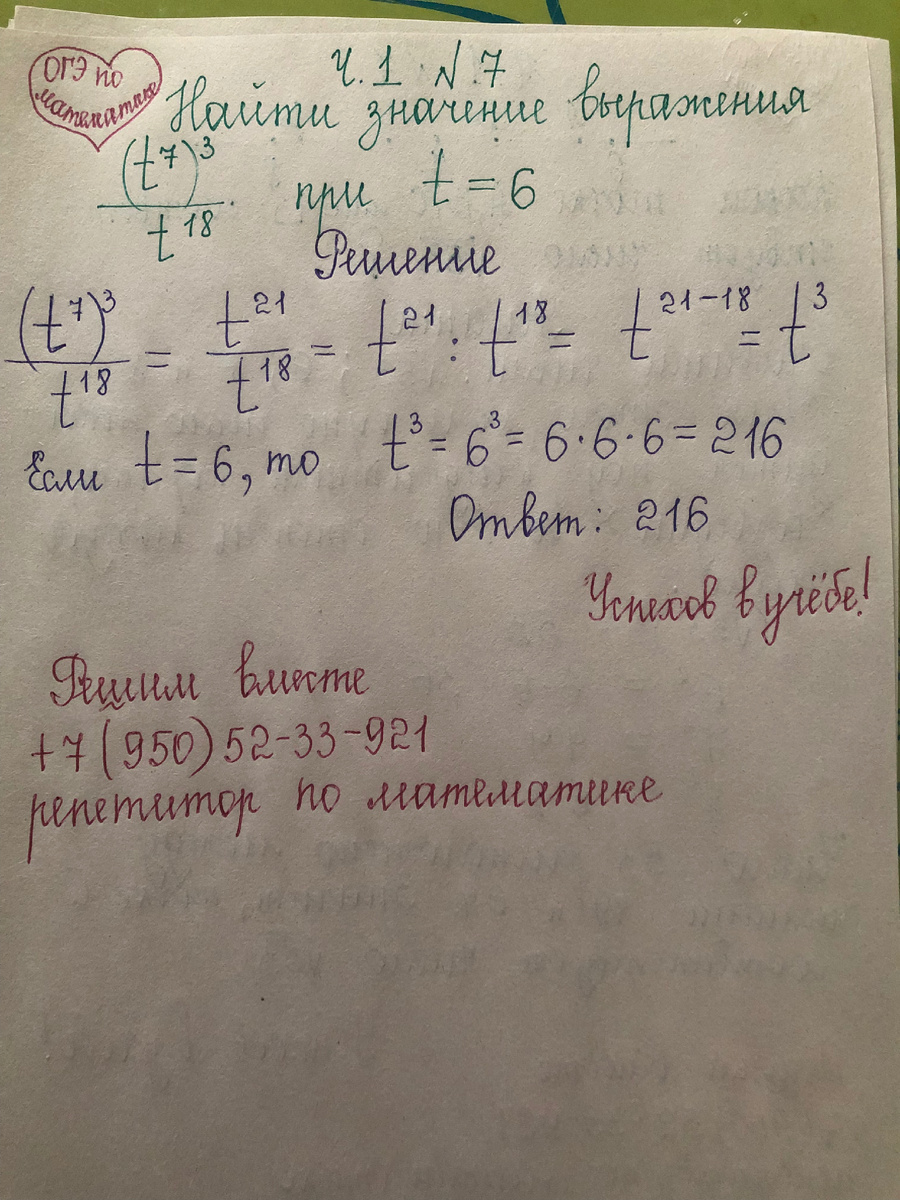 ОГЭ по
математике
Ч.1 №7
Найти значение выражения
(t⁷)³/t¹⁸ при t = 6
Решение
(t⁷)³/t¹⁸ = t²¹/t¹⁸ = t²¹ : t¹⁸ = t²¹⁻¹⁸ = t³
Если t = 6, то t³ = 6³ = 6·6·6 = 216
Ответ: 216
Успехов в учёбе!
Решим вместе
+7(950)52-33-921
репетитор по математике